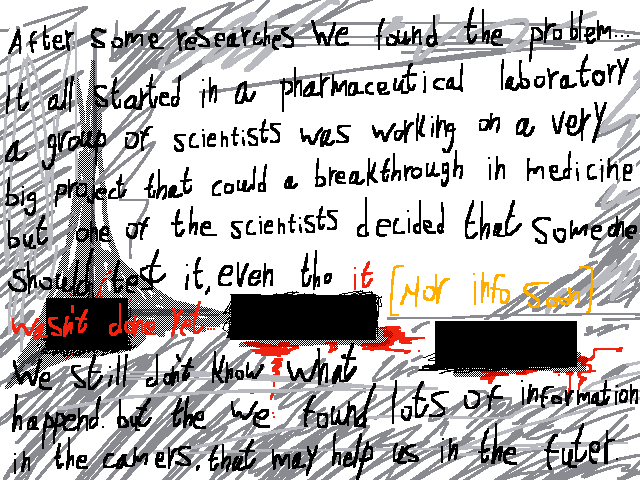 After some researches we found the problem...
It all started in a pharmaceutical laboratory
a group of scientists was working on a very
big project that could a breakthrough in medicine
but one of the scientists decided that someone
should test it, even tho it
[Mor info soon]
wasn't done yet
We still don't know what
happend. but the we found lots of information
in the camers. that may help us in the futer.